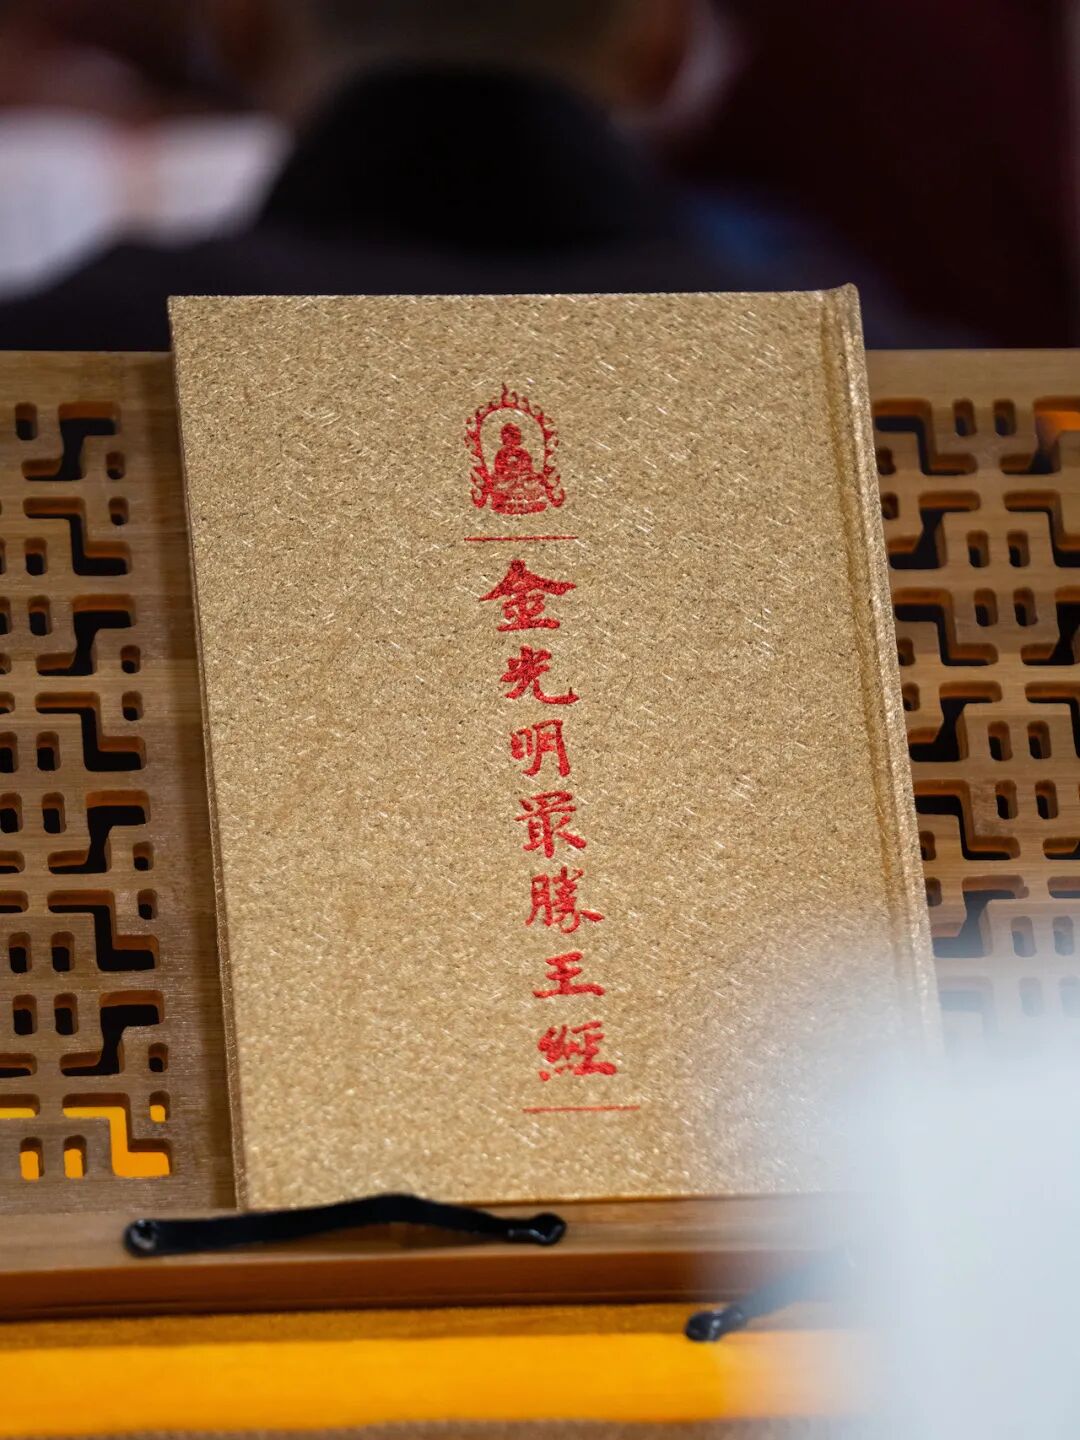 金光明最勝王經